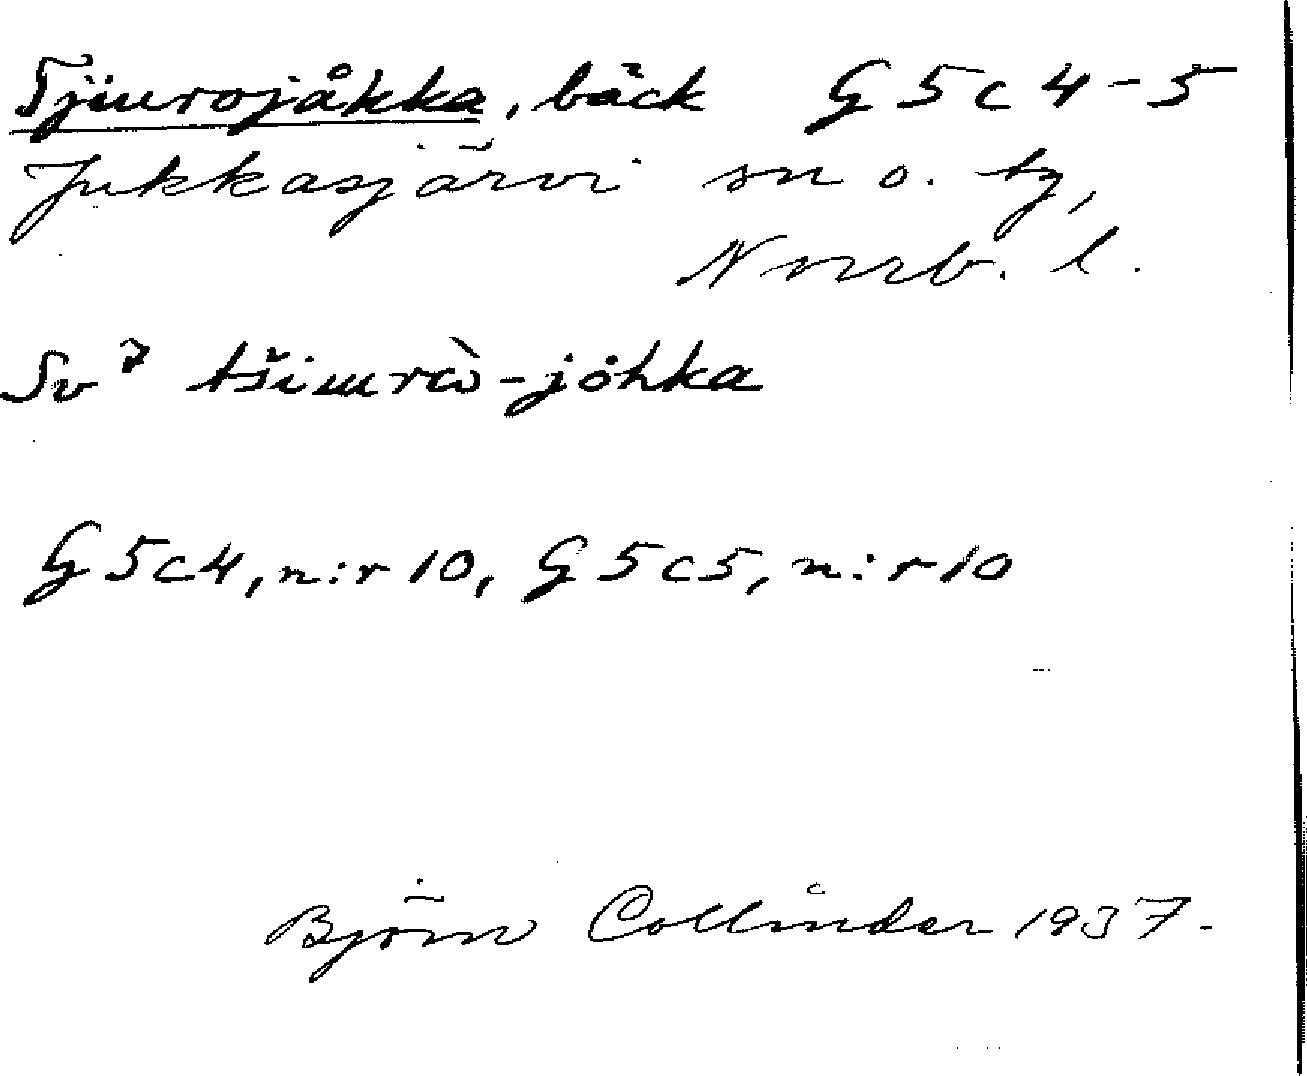 Tjiurojåkka, bäck G 5 c 4-5
Jukkasjärvi sn o. tg,
Norrb. l.
Sv 7 tšiurɷ̀-jȯhka
G 5 c 4, n:r 10, G 5 c 5, n:r 10
Björn Collinder 1937.